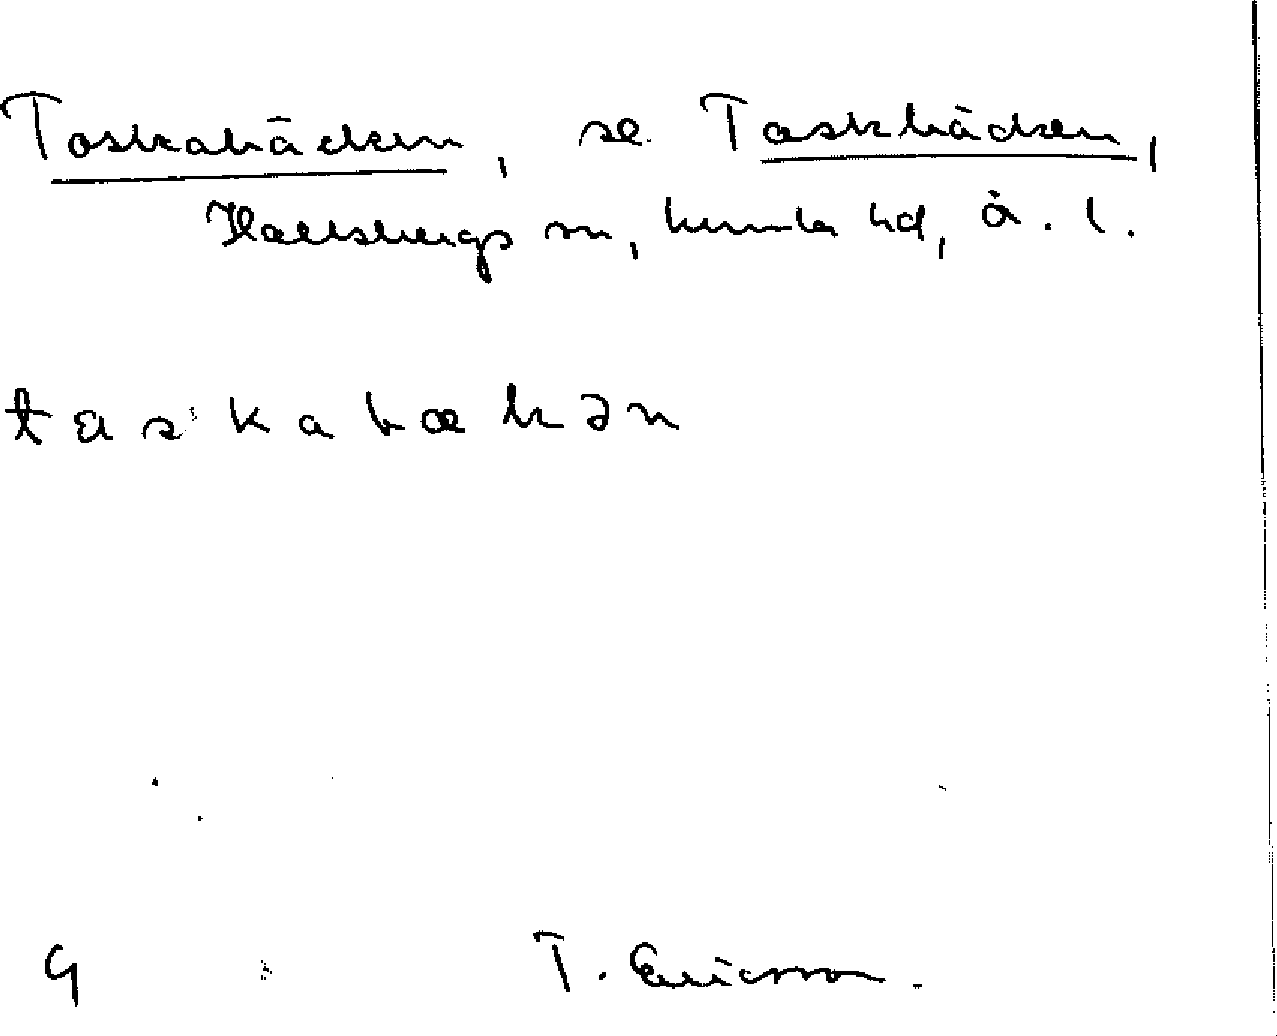 Taskabäcken, se Taskbäcken,
Hallsbergs sn, Kumla hd, ö. l.
taskabækən
G T. Ericsson.